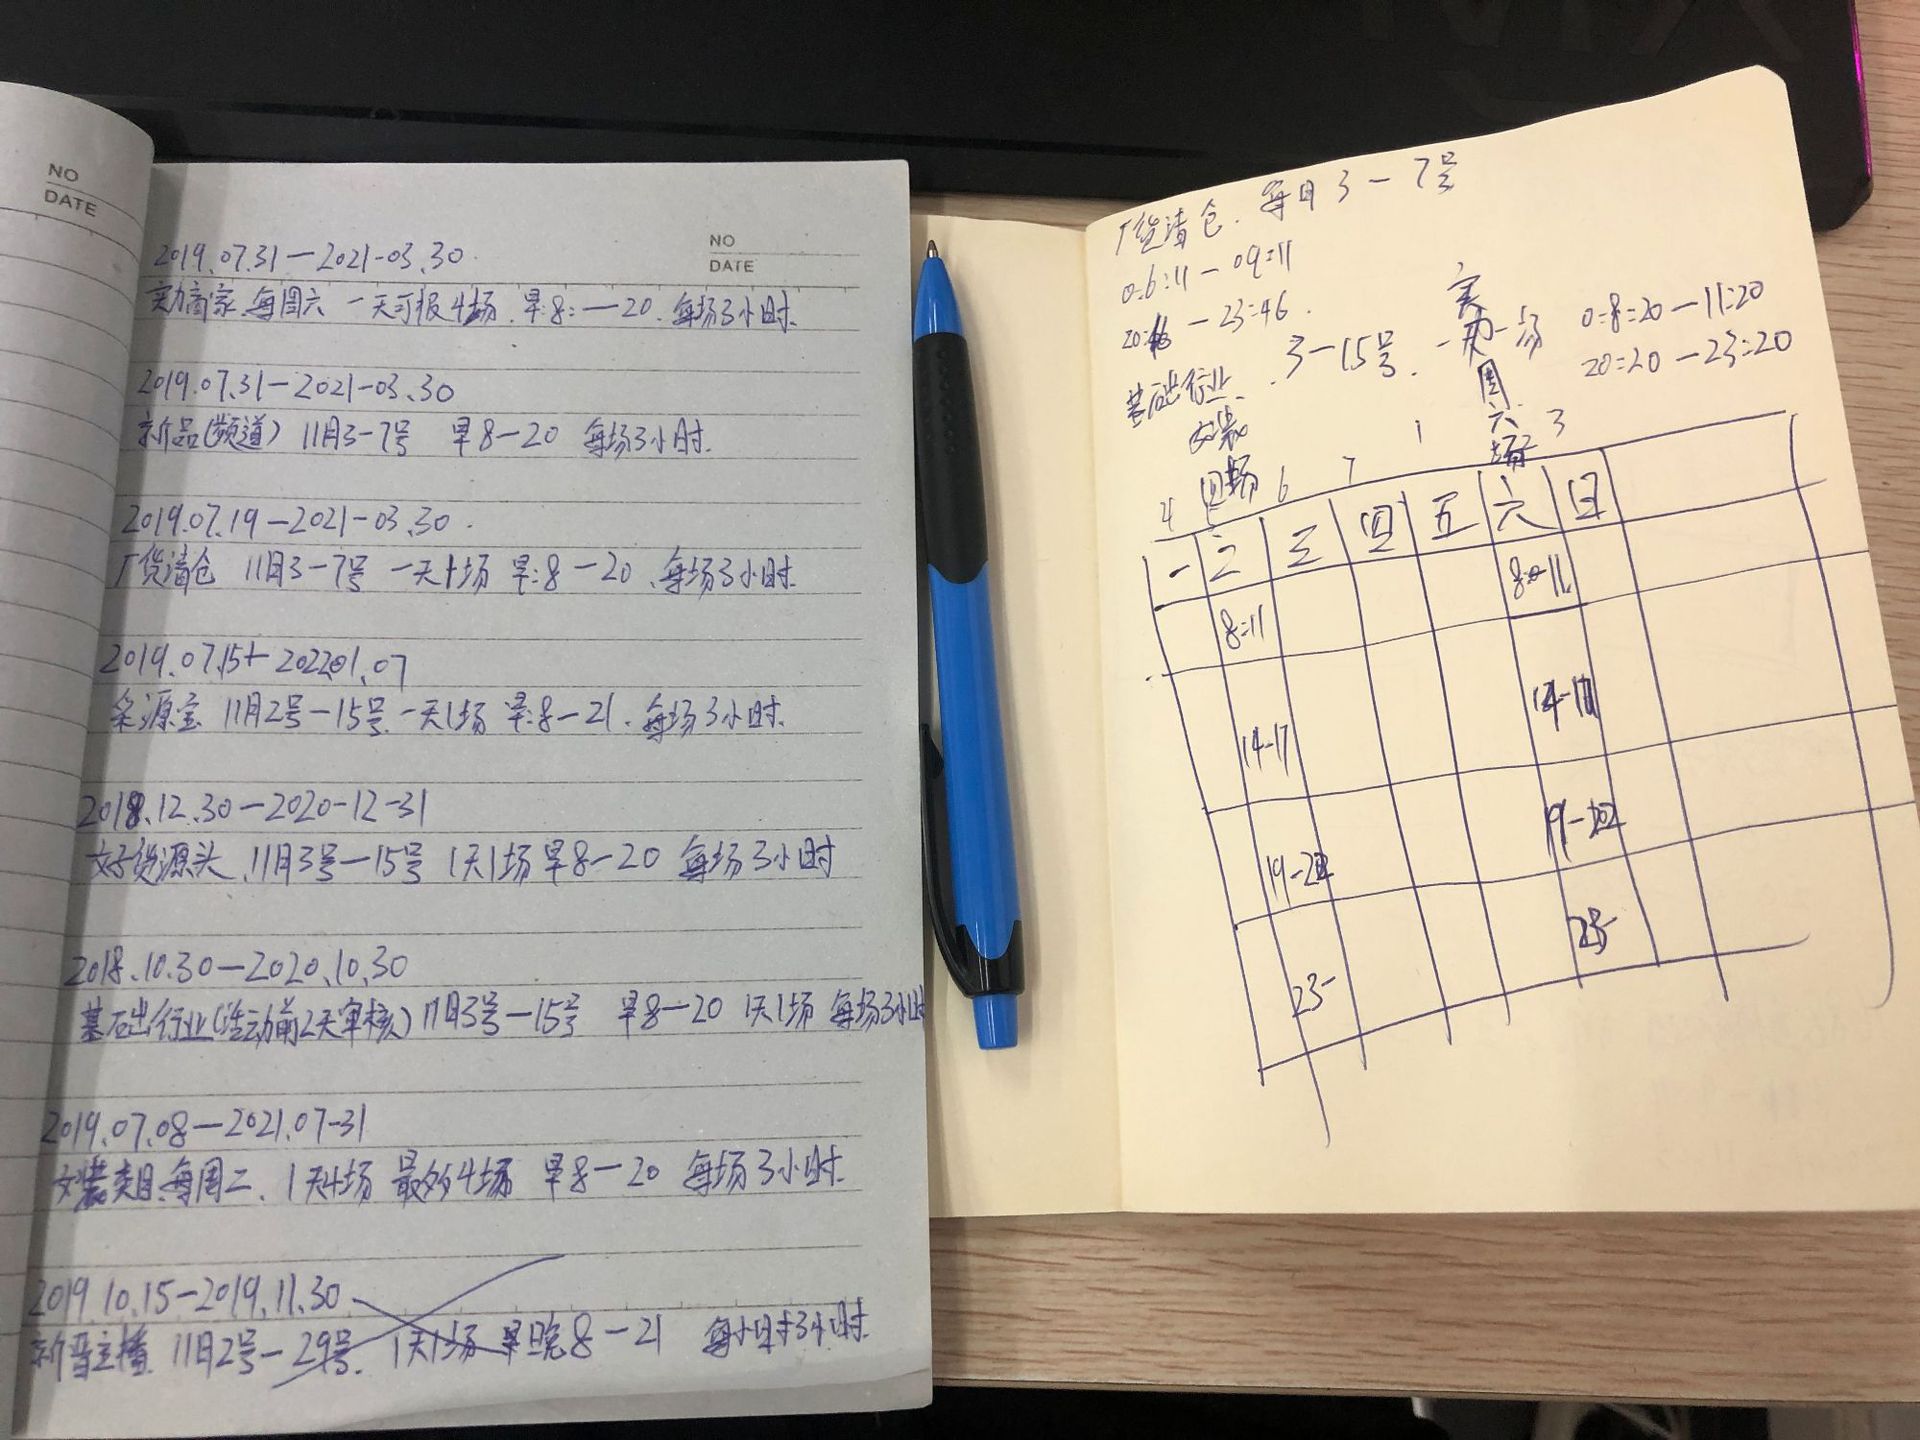 NO
DATE
NO
DATE
2019.07.31—2021-03.30.
实力商家.每周六 一天可报4场.早:8:—20.每场3小时.
2019.07.31—2021-03.30
新品(频道) 11月3-7号 早8—20 每场3小时.
2019.07.19—2021-03.30.
厂货清仓 11月3—7号 一天1场 早:8—20.每场3小时.
2019.07.15 2022.01.07
采源宝 11月2号—15号.一天1场 早:8—21.每场3小时.
2018.12.30—2020-12-31
好货源头.11月3号—15号 1天1场 早8—20 每场3小时
2018.10.30—2020.10.30
基础行业(活动前2天审核) 11月3号—15号 早8—20 1天1场 每场3小时
2019.07.08—2021.07-31
女装类目.每周二、1天4场 最多4场 早8—20 每场3小时.
2019.10.15—2019.11.30
新晋主播 11月2号—29号. 1天1场 早晚8—21 每小时3小时.
厂货清仓. 每日3—7号
0.6:11—09:11
20:46—23:46.
基础行业. 3—15号. 一天一场
0:8:20—11:20
20:20—23:20
女装
四场
实
力
周
六
场
4 6 7 1 3
一 二 三 四 五 六 日
8:11 8:0-11
14-17 14-17
19-22 19-22
23- 23-